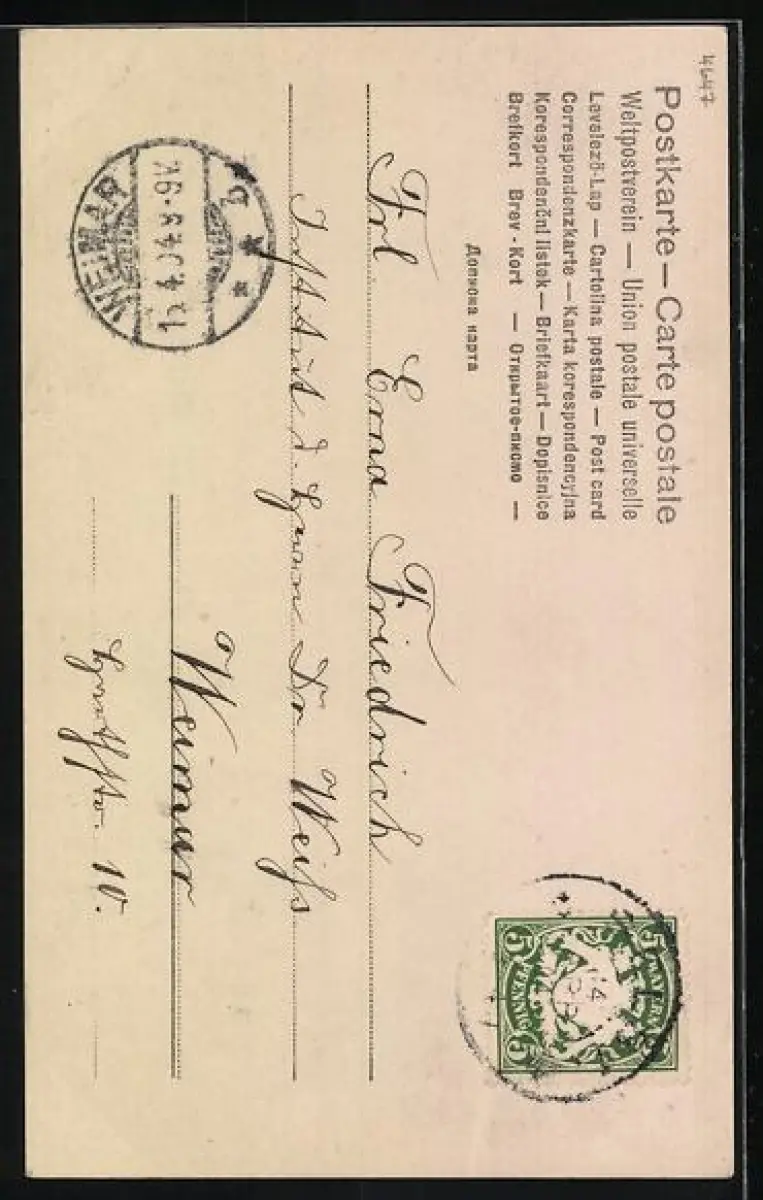 4647
Postkarte — Carte postale
Weltpostverein — Union postale universelle
Levelező-Lap — Cartolina postale — Post card
Correspondenzkarte — Karta korespondencyjna
Korespondenční lístek — Briefkaart — Dopisnice
Brefkort Brev-Kort — Открытое-письмо —
Дописна карта
BAYERN
5 5
PFENNIG
Frl Erna Friedrich
Institut d. Herrn Dr Weiß
Weimar
WEIMAR